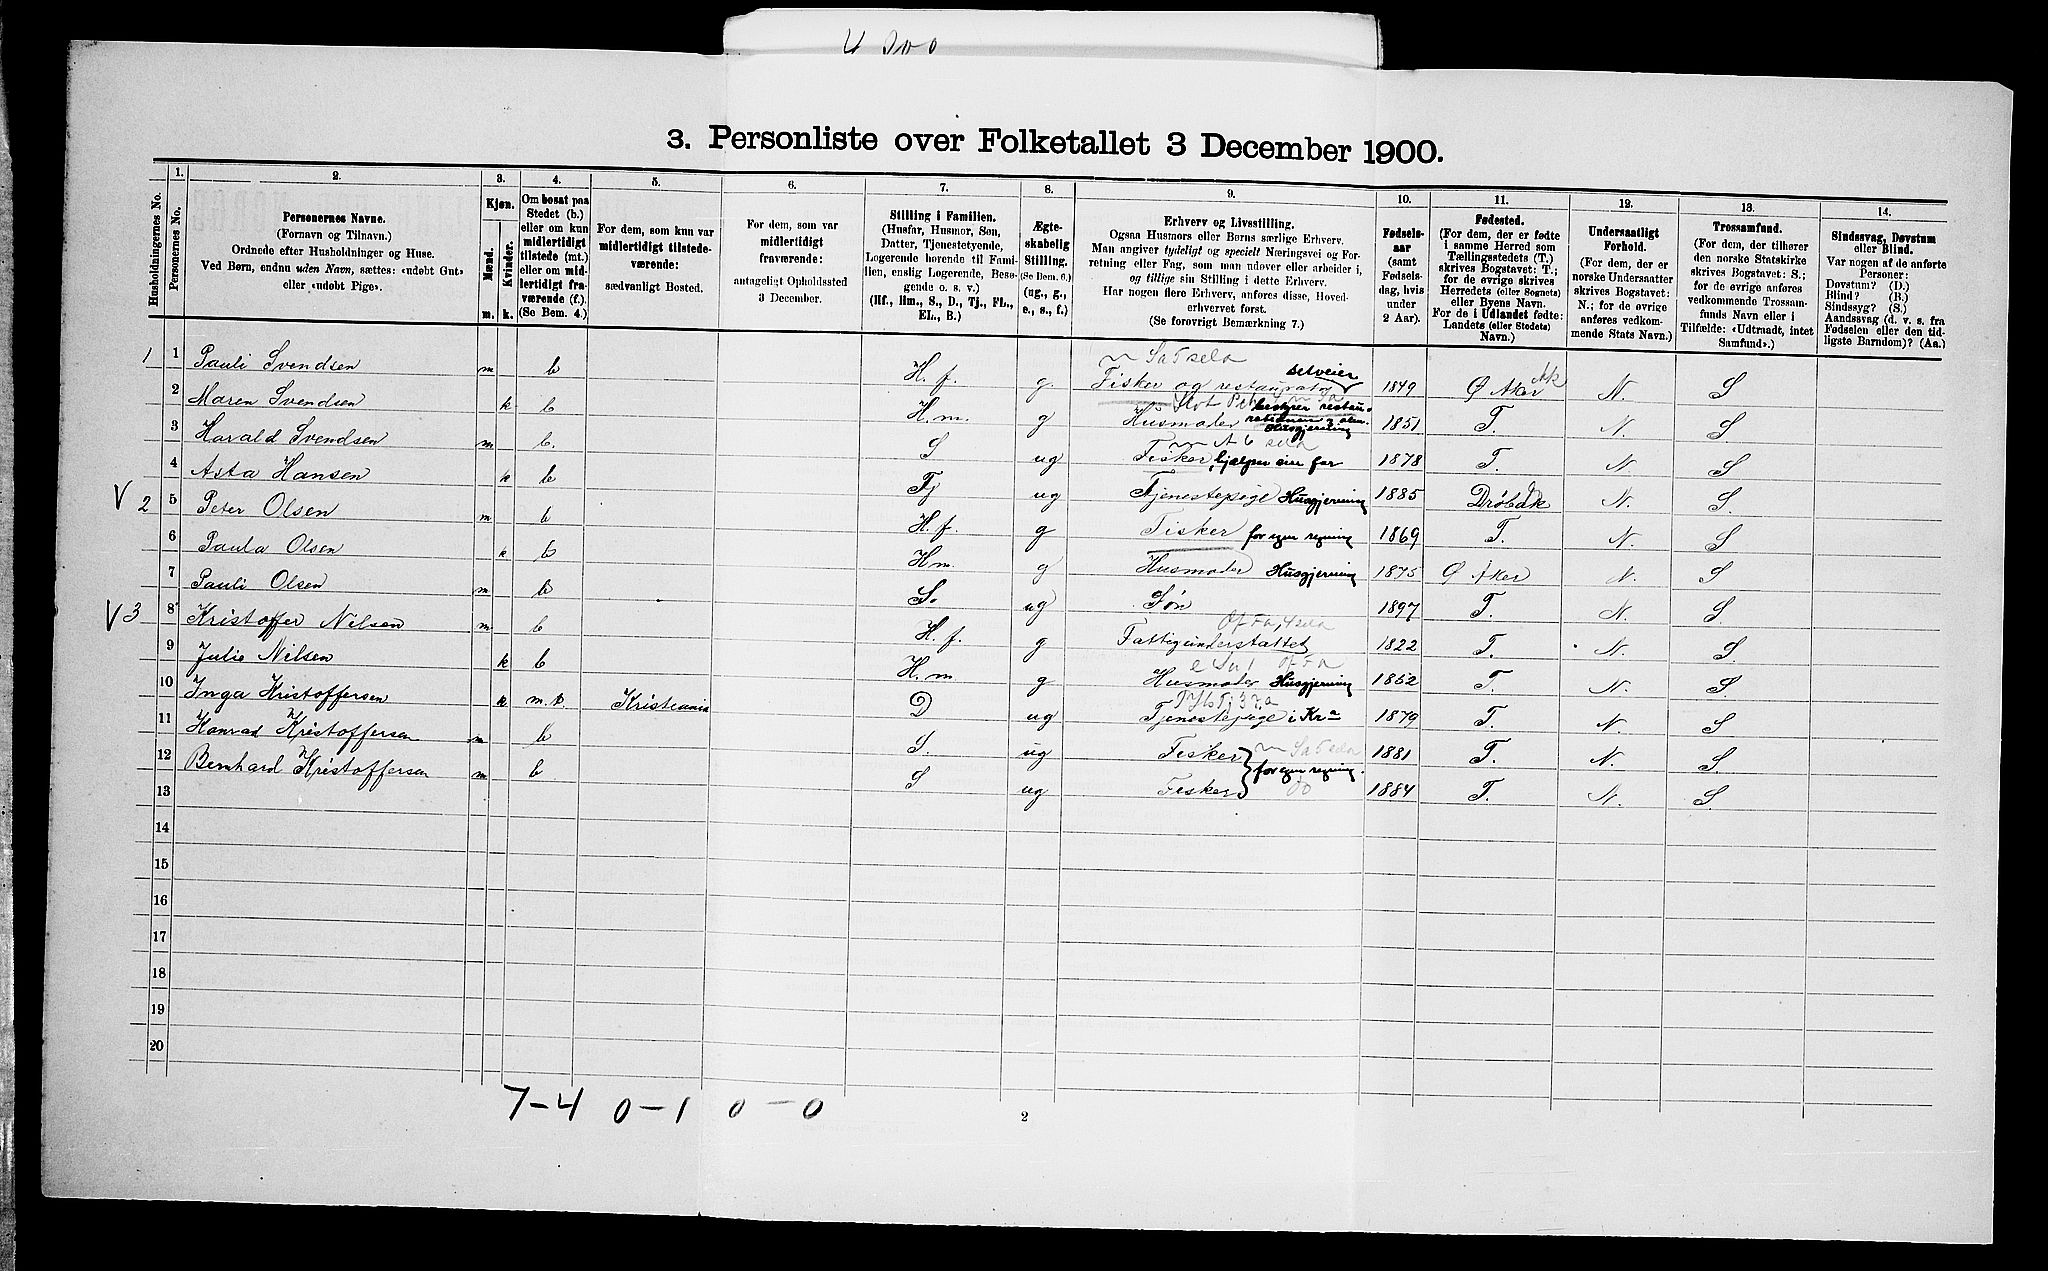 3. Personliste over Folketallet 3 December 1900.
1. 2. 3. 4. 5. 6. 7. 8. 9. 10. 11. 12. 13. 14.
Husholdningernes No.
Personernes No.
Personernes Navne.
(Fornavn og Tilnavn.)
Ordnede efter Husholdninger og Huse.
Ved Børn, endnu uden Navn, sættes: «udøbt Gut»
eller «udøbt Pige».
Kjøn.
Mænd.
Kvinder.
m. k.
Om bosat paa
Stedet (b.)
eller om kun
midlertidigt
tilstede (mt.)
eller om mid-
lertidigt fra-
værende (f.).
(Se Bem. 4.)
For dem, som kun var
midlertidigt tilstede-
værende:
sædvanligt Bosted.
For dem, som var
midlertidigt
fraværende:
antageligt Opholdssted
3 December.
Stilling i Familien.
(Husfar, Husmor, Søn,
Datter, Tjenestetyende,
Logerende hørende til Fami-
lien, enslig Logerende, Besø-
gende o. s. v.)
(Hf., Hm., S., D., Tj., FL.,
EL., B.)
Ægte-
skabelig
Stilling.
(Se Bem. 6.)
(ug., g.,
e., s., f.)
Erhverv og Livsstilling.
Ogsaa Husmors eller Børns særlige Erhverv.
Man angiver tydeligt og specielt Næringsvei og For-
retning eller Fag, som man udøver eller arbeider i,
og tillige sin Stilling i dette Erhverv.
Har nogen flere Erhverv, anføres disse, Hoved-
erhvervet først.
(Se forøvrigt Bemærkning 7.)
Fødsels-
aar
(samt
Fødsels-
dag, hvis
under
2 Aar).
Fødested.
(For dem, der er fødte
i samme Herred som
Tællingsstedets (T.)
skrives Bogstavet: T.;
for de øvrige skrives
Herredets (eller Sognets)
eller Byens Navn.
For de i Udlandet fødte:
Landets (eller Stedets)
Navn.)
Undersaatligt
Forhold.
(For dem, der er
norske Undersaatter
skrives Bogstavet:
N.; for de øvrige
anføres vedkom-
mende Stats Navn.)
Trossamfund.
(For dem, der tilhører
den norske Statskirke
skrives Bogstavet: S.;
for de øvrige anføres
vedkommende Trossam-
funds Navn eller i
Tilfælde: «Udtraadt, intet
Samfund».)
Sindssvag, Døvstum
eller Blind.
Var nogen af de anførte
Personer:
Døvstum? (D.)
Blind? (B.)
Sindssyg? (S.)
Aandssvag (d. v. s. fra
Fødselen eller den tid-
ligste Barndom)? (Aa.)
1 1 Pauli Svendsen m b H. f. g Fisker og restauratør selveier 1849 Ø Aker Ak N. S
2 Maren Svendsen k b H. m. g Husmoder 1851 T. N. S
3 Harald Svendsen m b. S ug Fisker, hjælper sin far 1878 T. N S
4 Asta Hansen k b Tj ug Tjenestepige Husgjerning 1885 Drøbak N. S.
2 5 Peter Olsen m b H. f. g Fisker for egen regning 1869 T. N. S
6 Paula Olsen k b Hm. g Husmoder Husgjerning 1875 Ø Aker N. S
7 Pauli Olsen m b S. ug Søn 1897 T. N. S
3 8 Kristoffer Nilsen m. b H. f. g Fattigunderstøttet 1822 T. N. S.
9 Julie Nilsen k b H. m g Husmoder Husgjerning 1852 T. N. S
10 Inga Kristoffersen k m.t. Kristiania D ug Tjenestepige i Kra 1879 T. N. S
11 Konrad Kristoffersen m b S. ug Fisker for egen regning. 1881 T. N. S.
12 Bernhard Kristoffersen m b S ug Fisker 1884 T. N. S.
13
14
15
16
17
18
19
20
7-4 0-1 0-0
2